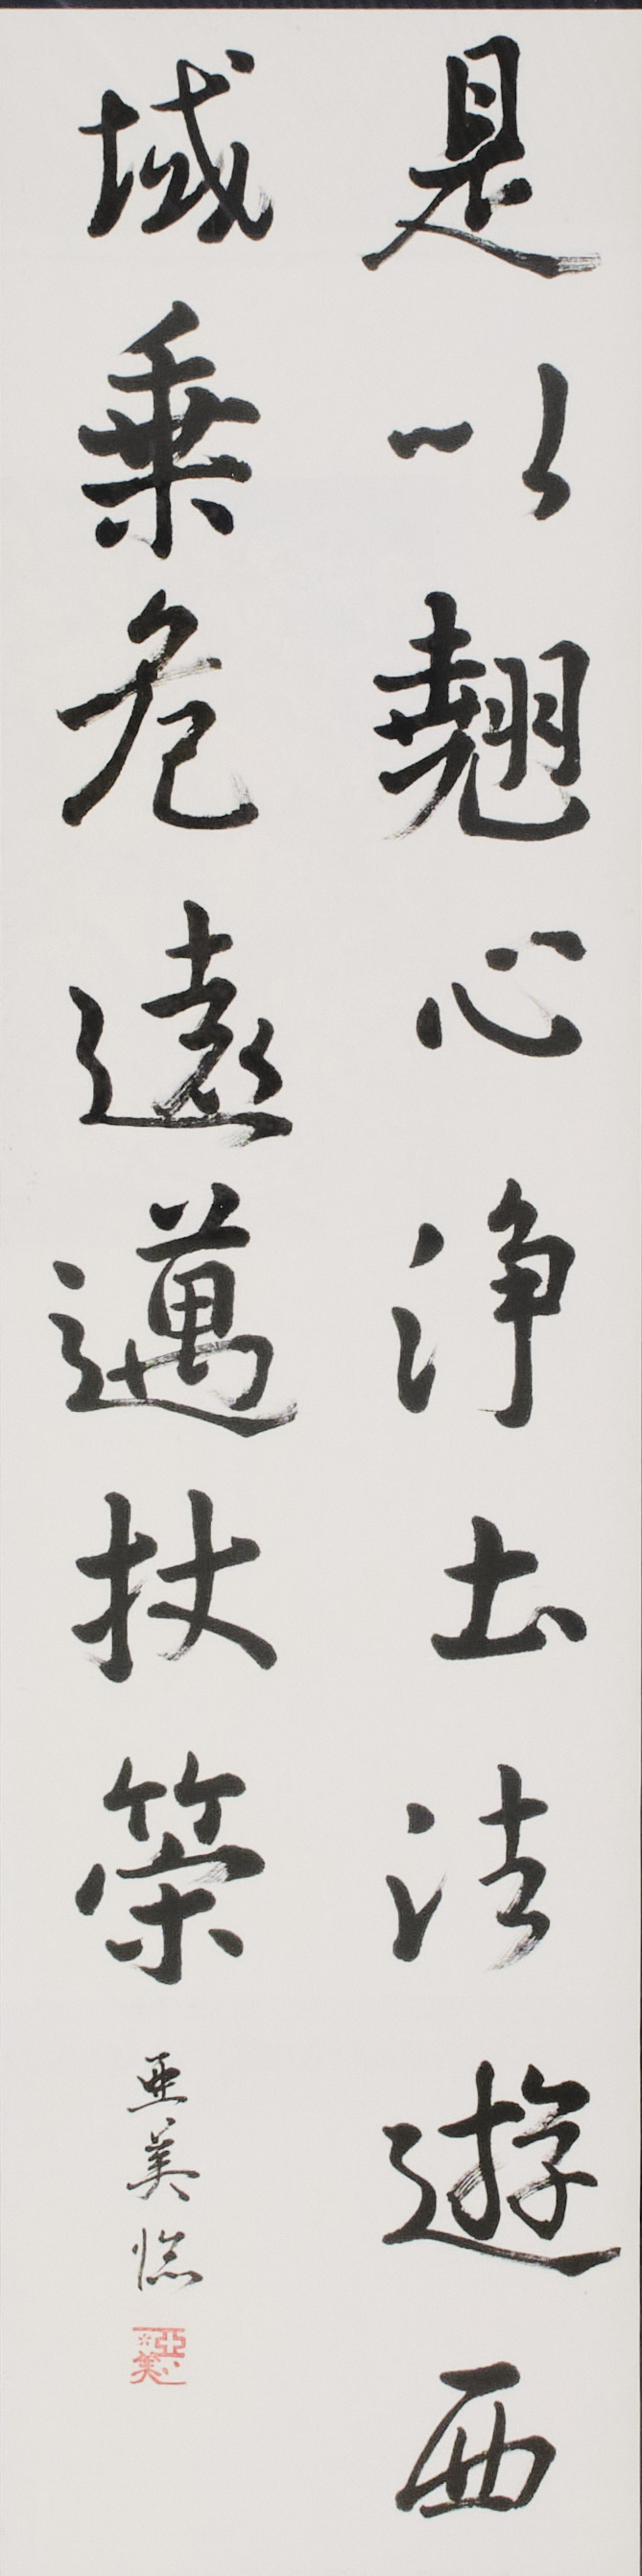 是以翹心浄土法遊西
域乗危遠邁杖策
亜美臨
亞美